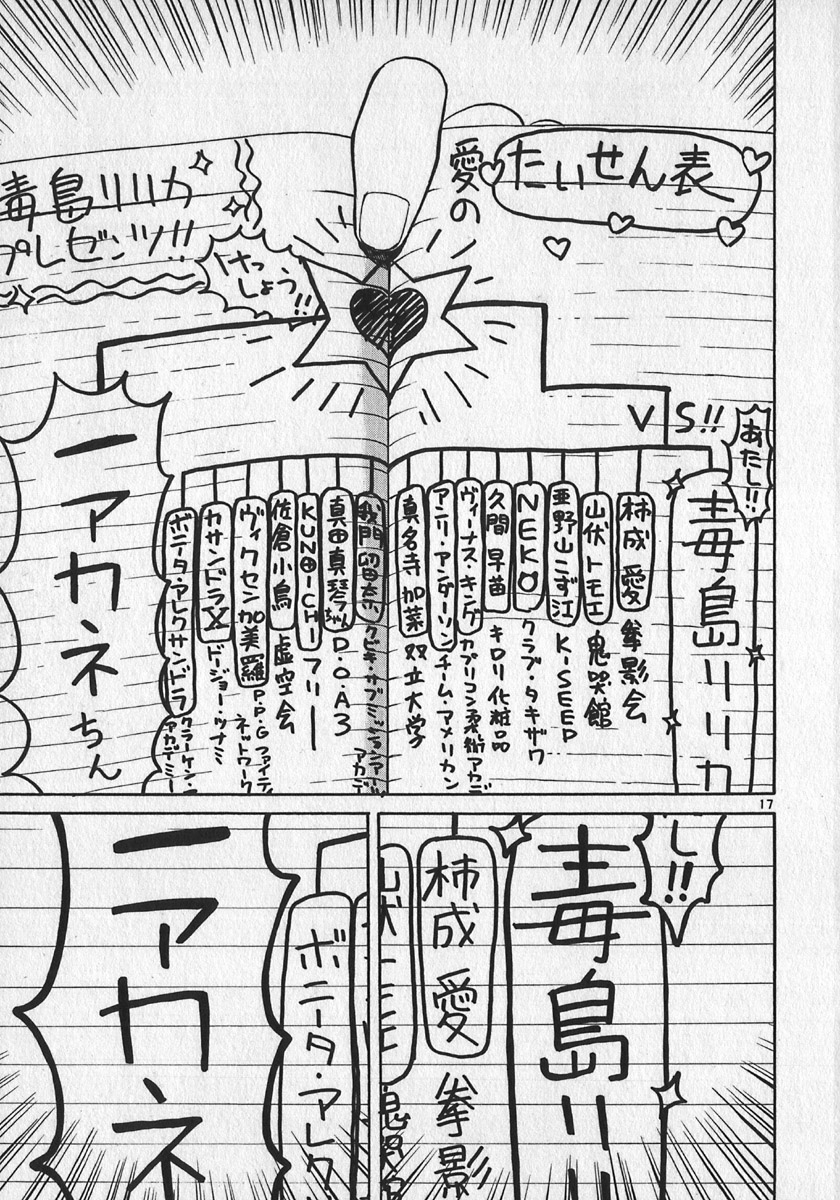 愛の
たいせん表
毒島リリカ
プレゼンツ!!
けっしょう!!
VS!!
あたし!!
毒島リリカ
柿成 愛 拳影会
山伏トモエ 鬼哭館
亜野山こず江 K-SEEP
NEKO クラブ・タキザワ
久間 早苗 キロリ化粧品
ヴィーナス・キング カプリコン柔術アカデ
アンリ・アンダーソン チーム・アメリカン
真名寺加菜 双立大学
我門留奈 クビキ・サブミッションアーツ
アカデ
真田真琴ちゃん D.O.A3
KUNO-ICHI フリー
佐倉小鳥 虚空会
ヴィクセン加美羅 P.P.Gファイティ
ネットワーク
カサンドラX ドージョー・ツナミ
ボニータ・アレクサンドラ クラーケン・
アカデミー
一アカネちん
17
し!!
毒島リリ
柿成 愛 拳影
山伏トモエ 鬼哭館
ボニータ・アレク
一アカネ